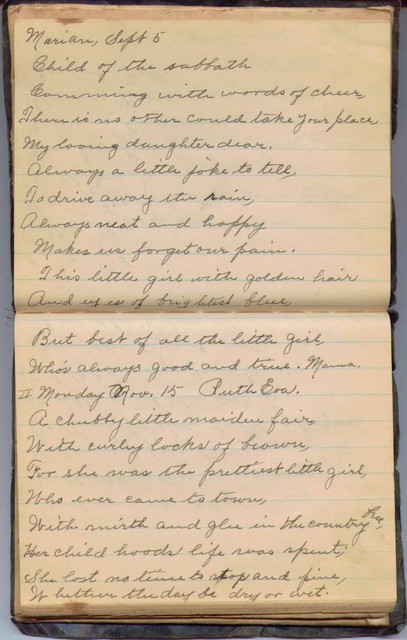 Marian, Sept 5
Child of the sabbath
Comming with words of cheer,
There is no other could take your place
My loving daughter dear.
Always a little joke to tell,
To drive away the rain,
Always neat and happy
Makes us forget our pain.
This little girl with golden hair
And eyes of brightest blue
But best of all the little girl,
Who's always good and true. Mama.
II Monday Nov. 15 Ruth Eva.
A chubby little maiden fair,
With curley locks of brown,
For she was the prettiest little girl,
Who ever came to town,
With mirth and glee in the country
Her child hoods life was spent;
She lost no time to stop and pine,
Whether the day be dry or wet.